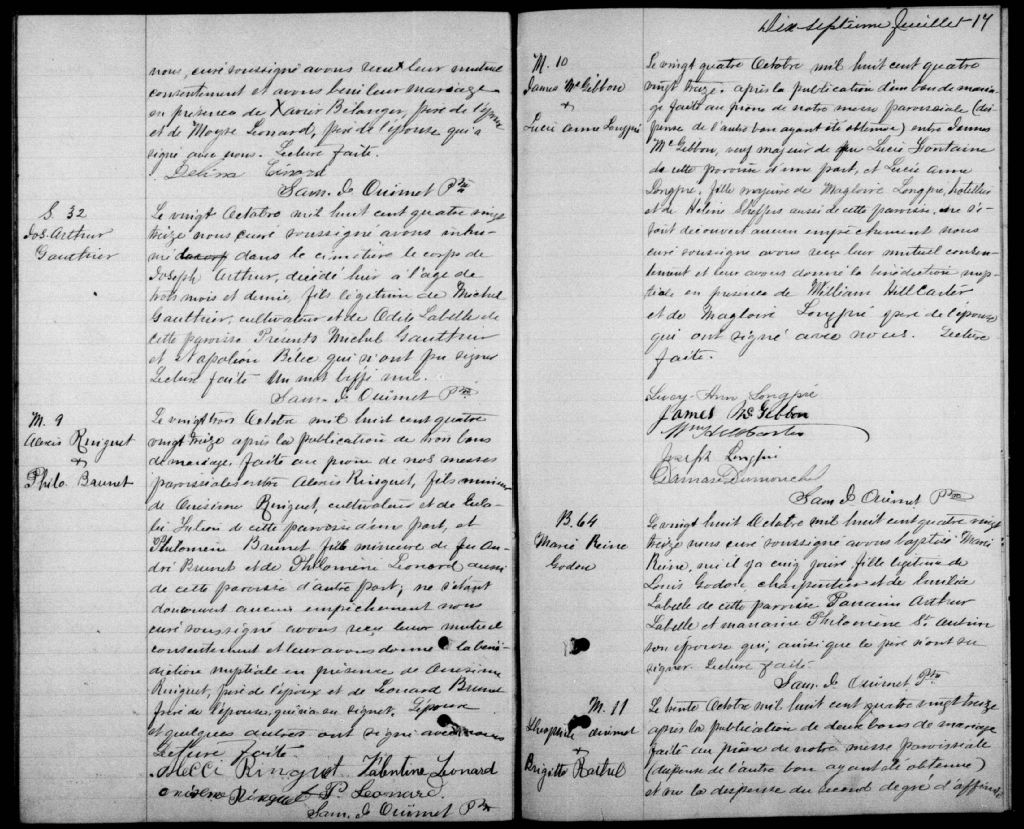 nous, curé soussigné avons reçu leur mutuel
consentement et avons beni leur mariage
en présence de Xavier Bélanger, père de l'époux
et de Moyse Leonard, père de l'épouse qui a
signé avec nous. Lecture faite.
Delina
Sam. J. Ouimet Ptre
S. 32
Jos. Arthur
Gauthier
Le vingt Octobre mil huit cent quatre vingt
treize nous curé soussigné avons inhu-
mé dans le cimetière le corps de
Joseph Arthur, décédé hier à l'âge de
trois mois et demie, fils légitime de Michel
Gauthier, cultivateur et de Odile Labelle de
cette paroisse Presents Michel Gauthier
et Napoléon Bélec qui n'ont pu signer
Lecture faite Un mot biffé nul.
Sam. J. Ouimet Ptre
M. 9
Alexis Ringuet
+
Philo. Brunet
Le vingt trois Octobre mil huit cent quatre
vingt treize après la publication de trois bans
de mariage, faite au prone de nos messes
paroissiales entre Alexis Ringuet, fils mineur
de Onésime Ringuet, cultivateur et de Eula-
lie de cette paroisse d'une part, et
Philomène Brunet fille mineure de feu An-
dré Brunet et de Philomène Leonard aussi
de cette paroisse d'autre part; ne s'étant
découvert aucun empêchement nous
curé soussigné avons reçu leur mutuel
consentement et leur avons donné la béné-
diction nuptiale en présence de Onésime
Ringuet, père de l'époux et de Leonard Brunet
frère de l'épouse, qui n'a su signer. L'époux
et quelques autres ont signé avec nous
Lecture faite.
Ringuet Valentine Leonard
Onisime Ringuet P. Leonard.
Sam. J. Ouimet Ptre
Dix-septième Juillet 17
M. 10
James McGibbon
+
Lucie Anne Longpré
Le vingt quatre Octobre mil huit cent quatre
vingt treize. après la publication d'un ban de maria-
ge faite au prone de notre messe paroissiale (dis-
pense de l'autre ban ayant été obtenue) entre James
McGibbon, veuf majeur de feu Lucie Fontaine
de cette paroisse d'une part, et Lucie Anne
Longpré, fille majeure de Magloire Longpré, hotellier
et de Helène Sheffers aussi de cette paroisse. ne s'é-
tant découvert aucun empêchement nous
curé soussigné avons reçu leur mutuel consen-
tement et leur avons donné la bénédiction nup-
tiale en présence de William Hill Carter
et de Magloire Longpré père de l'épouse
qui ont signé avec nous. Lecture
faite.
Lucy Ann Longpré
James McGibbon
Wm Hill Carter
Joseph Longpré
Damase Dumouchel
Sam. J. Ouimet Ptre
B. 64
Marie Reine
Godon
Le vingt huit Octobre mil huit cent quatre vingt
treize nous curé soussigné avons baptisé Marie
Reine, née il y a cinq jours, fille légitime de
Louis Godon, charpentier et de
Labelle de cette paroisse Parrain Arthur
Labelle et marraine Philomène St. Aubin
son épouse qui, ainsi que le père n'ont su
signer Lecture faite
Sam. J. Ouimet Ptre
M. 11
Ouimet
+
Brigitte
Le trente Octobre mil huit cent quatre vingt treize
après la publication de deux bans de mariage
faite au prône de notre messe paroissiale
(dispense de l'autre ban ayant été obtenue)
et vu la dispense du second degré d'affinité